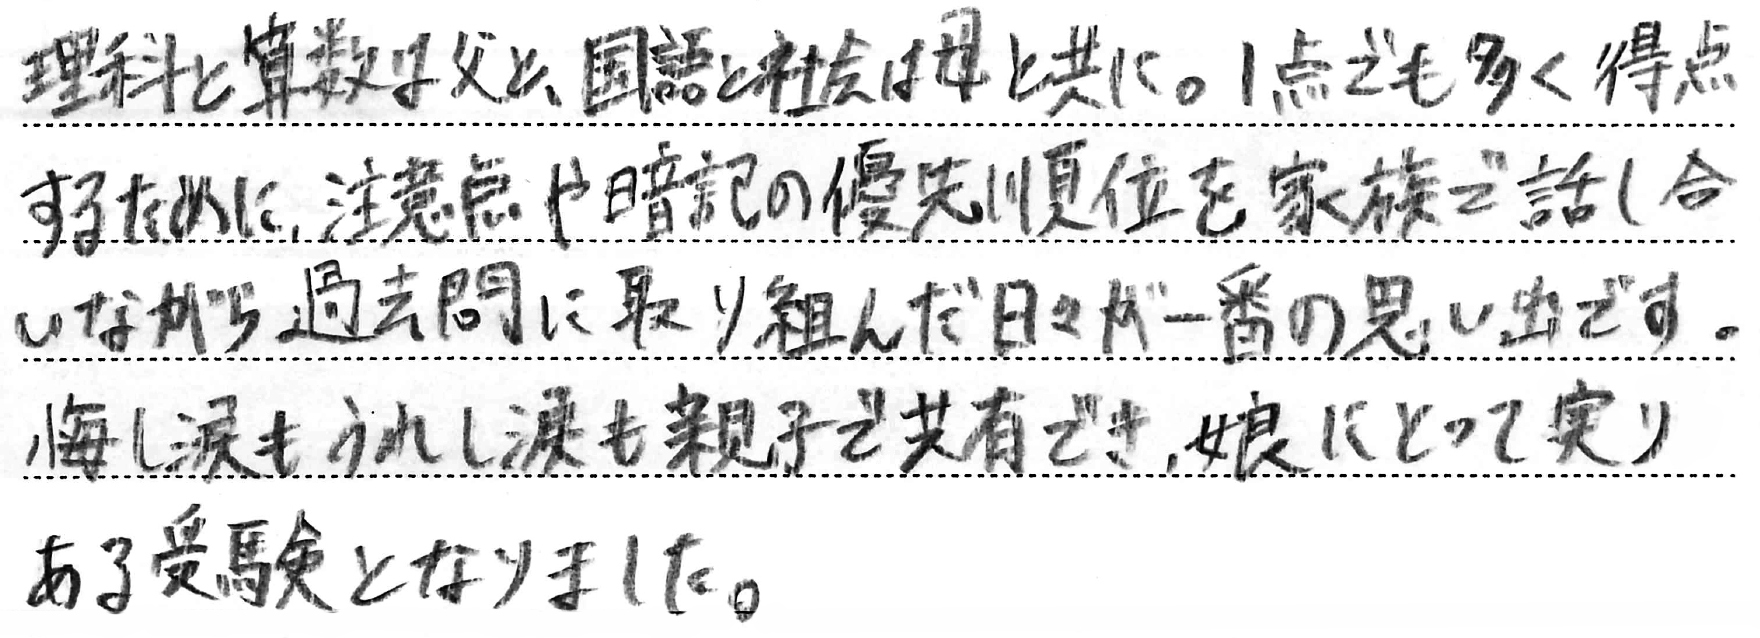 理科と算数は父と、国語と社会は母と共に。1点でも多く得点
するために、注意点や暗記の優先順位を家族で話し合
いながら過去問に取り組んだ日々が一番の思い出です。
悔し涙もうれし涙も親子で共有でき、娘にとって実り
ある受験となりました。